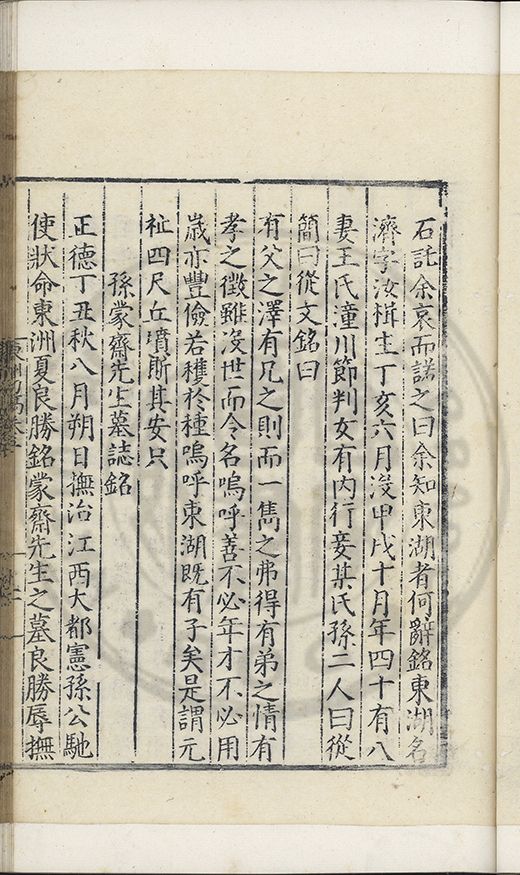 石託余哀而諾之曰余知東湖者何辭銘東湖名
濟字汝楫生丁亥六月沒甲戌十月年四十有八
妻王氏潼川節判女有內行妾某氏孫二人曰從
簡曰從文銘曰
有父之澤有兄之則而一雋之弗得有弟之情有
孝之徵雖沒世而令名嗚呼善不必年才不必用
歲亦豐儉若穫於種嗚呼東湖既有子矣是謂元
祉四尺丘墳斯其安只
孫蒙齋先生墓誌銘
正德丁丑秋八月朔日撫治江西大都憲孫公馳
使狀命東洲夏良勝銘蒙齋先生之墓良勝辱撫